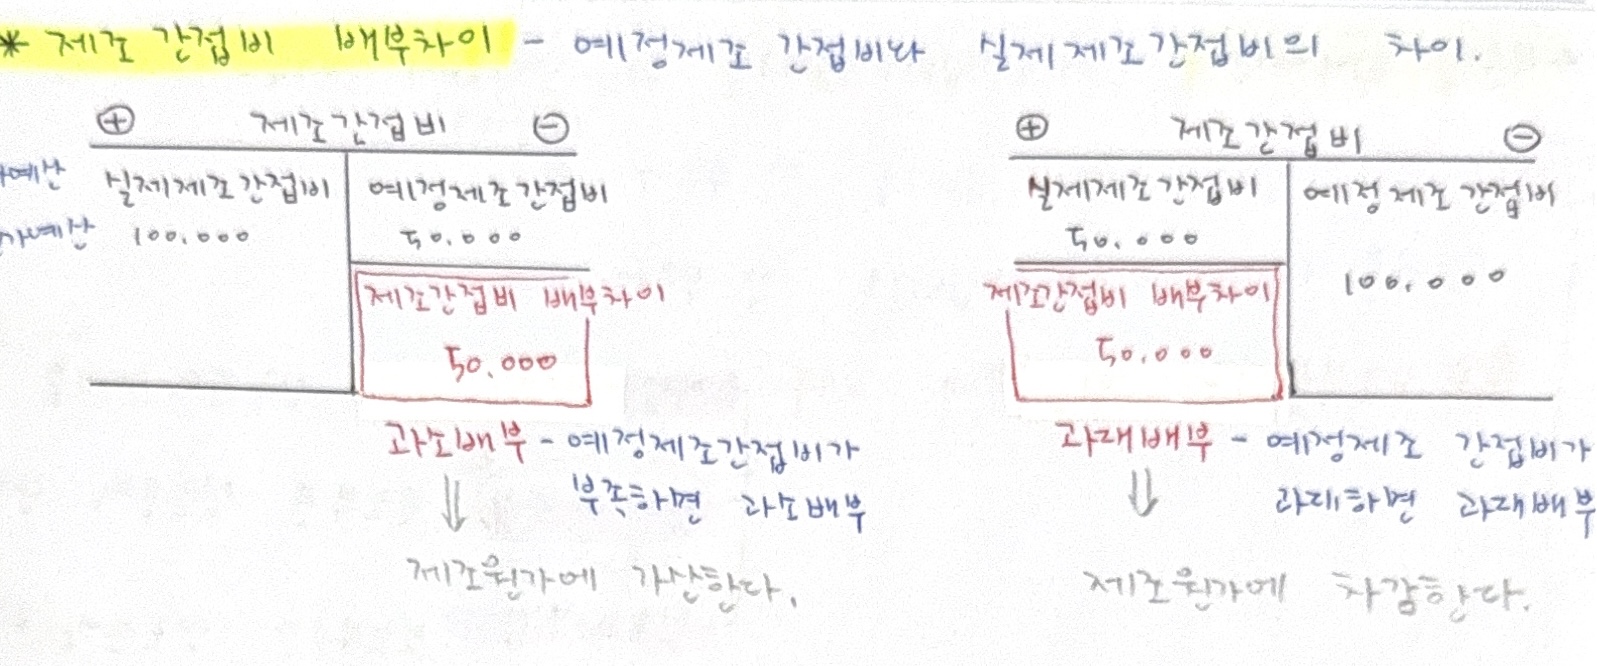 * 제조 간접비 배부차이 - 예정제조 간접비와 실제제조간접비의 차이.
⊕ 제조간접비 ⊖
실제제조간접비
100,000
예정제조간접비
50,000
제조간접비 배부차이
50,000
과소배부 - 예정제조간접비가
부족하면 과소배부
⇓
제조원가에 가산한다.
⊕ 제조간접비 ⊖
실제제조간접비
50,000
제조간접비 배부차이
50,000
예정 제조 간접비
100,000
과대배부 - 예정제조 간접비가
과대배부
⇓
제조원가에 차감한다.